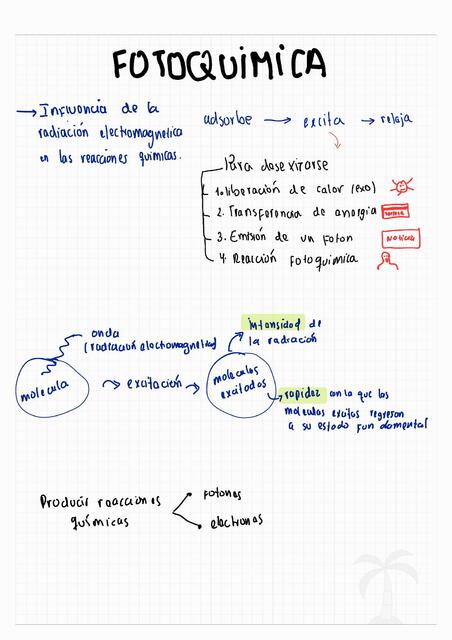 FOTOQUIMICA
→ Influencia de la
radiación electromagnetica
en las reacciones químicas.
adsorbe → excita → relaja
Para desexitarse
1. liberación de calor (exo)
2. Transferencia de energia
3. Emisión de un Foton
Noticia
4. Reacción fotoquimica
onda
(radiación electromagnetica)
molecula
→ excitación →
moleculas
excitadas
intensidad de
la radiación
rapidez con la que las
moleculas exitas regresan
a su estado fundamental
Producir reacciones
químicas
fotones
electrones